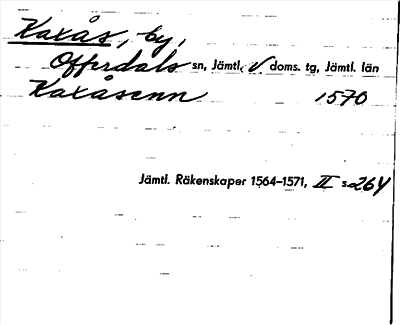 Kaxås, by,
Offerdals sn, Jämtl. V. doms. tg, Jämtl. län
Kaxåsenn 1570
Jämtl. Räkenskaper 1564–1571, II s. 264